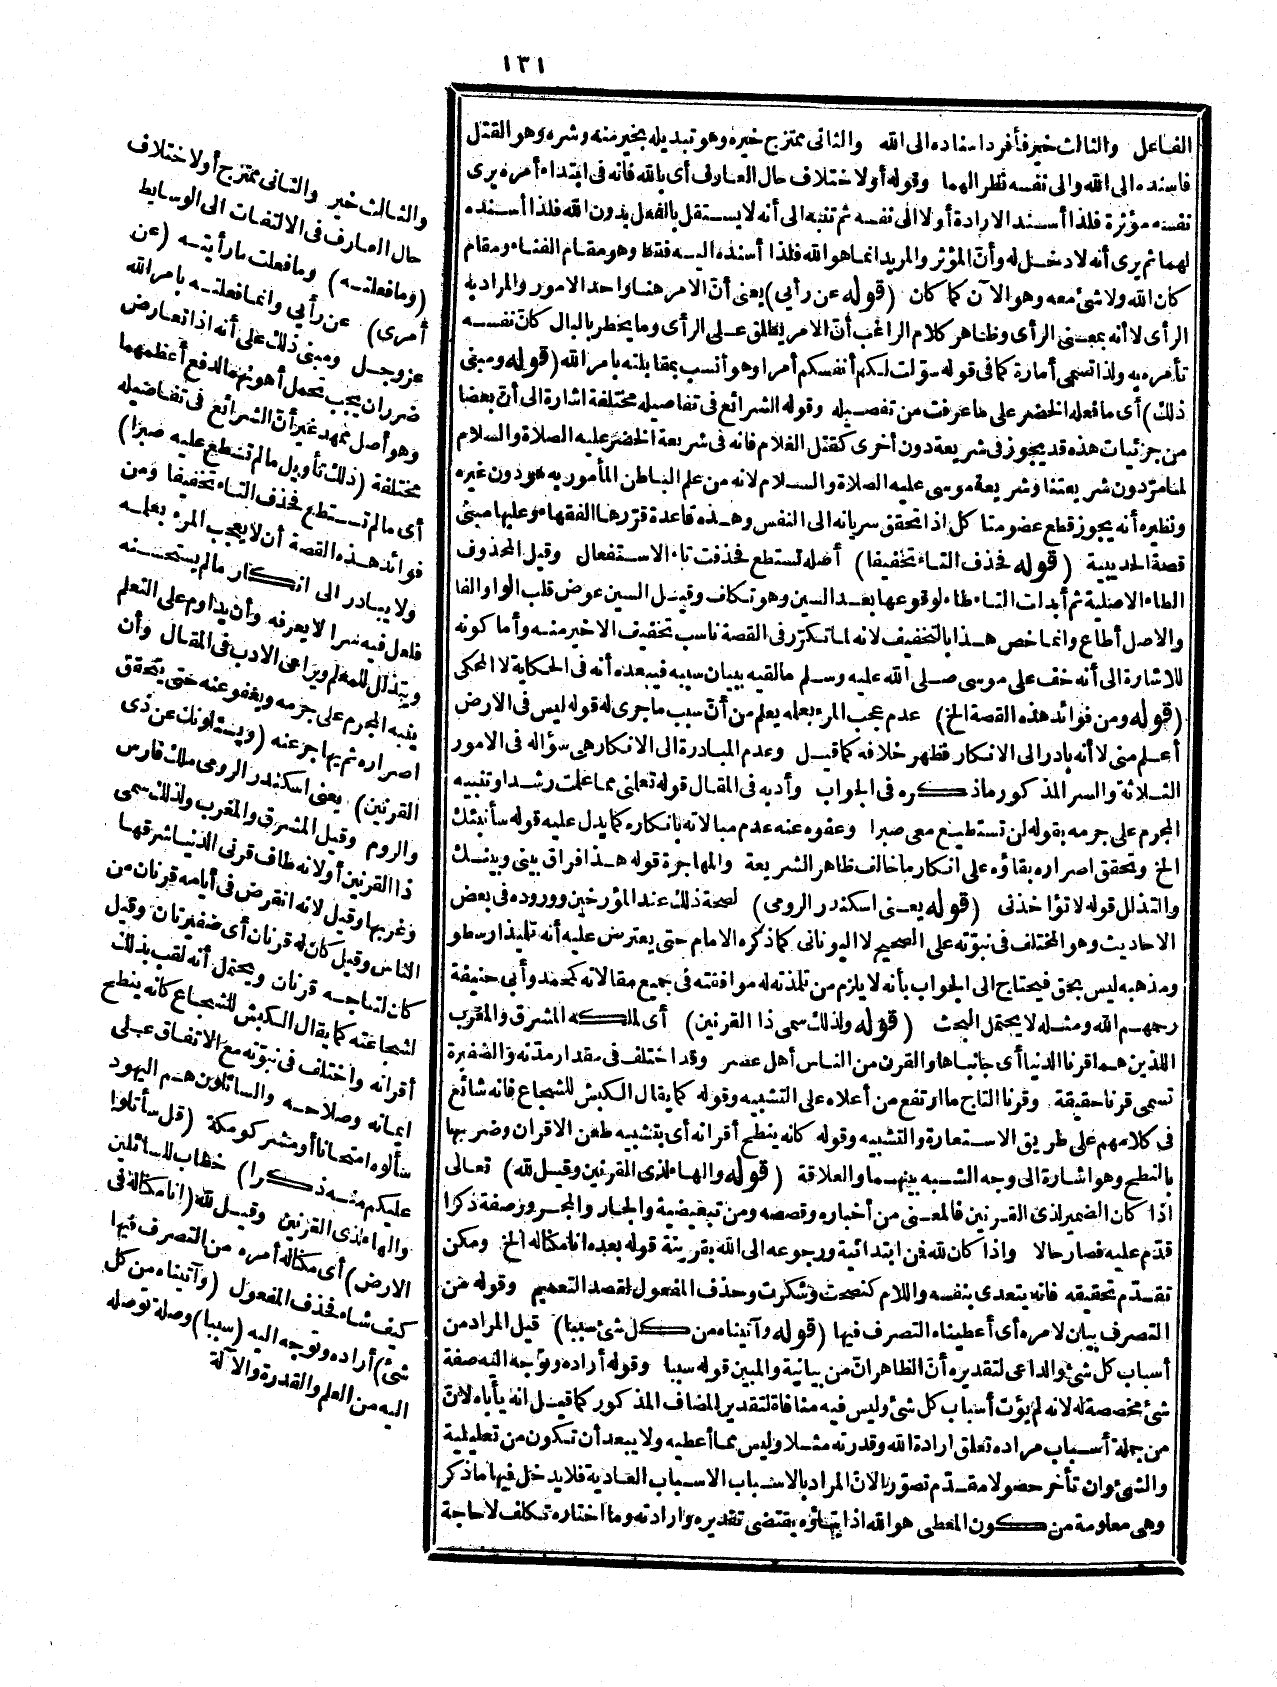 ١٣١
الفاعل والثالث خير فأفرد اسناده الى الله والثانى ممتزج خيره وهو تبديله بخير منه وشره وهو القتل
فاسنده الى الله والى نفسه نظر الهما وقوله أولا ختلاف حال العارف أى بالله فانه فى ابتداء أمره يرى
نفسه مؤثرة فلذا أسند الارادة أولا الى نفسه ثم تنبه الى أنه لا يستقل بالفعل بدون الله فلذا أسنده
لهما ثم يرى أنه لا دخل له وأن المؤثر والمريد انما هو الله فلذا أسنده اليه فقط وهو مقام الفناء ومقام
كان الله ولا شئ معه وهو الآن كما كان (قوله عن رأيي) يعنى أن الامر هنا واحد الامور والمراد به
الرأى لا أنه بمعنى الرأى وظاهر كلام الراغب أن الامر يطلق على الرأى وما يخطر بالبال كأن نفسه
تأمره به ولذا تسمى أمارة كما فى قوله سولت لكم أنفسكم أمرا وهو أنسب بمقابلته بامر الله (قوله ومبنى
ذلك) أى ما فعله الخضر على ما عرفت من تفصيله وقوله الشرائع فى تفاصيله مختلفة اشارة الى أن بعضا
من جزئيات هذه قد يجوز فى شريعة دون أخرى كقتل الغلام فانه فى شريعة الخضر عليه الصلاة والسلام
لما مر دون شريعتنا وشريعة موسى عليه الصلاة والسلام لانه من علم الباطن المأمور به هو دون غيره
ونظيره أنه يجوز قطع عضو متا كل اذا تحقق سريانه الى النفس وهذه قاعدة قررها الفقهاء وعليها مبنى
قصة الحديبية (قوله فحذف التاء تخفيفا) أصله تستطع فحذفت تاء الاستفعال وقيل المحذوف
الطاء الاصلية ثم أبدلت التاء طاء لوقوعها بعد السين وهو تكلف وقيل السين عوض قلب الواو الفا
والاصل أطاع وانما خص هذا بالتخفيف لانه لما تكرر فى القصة ناسب تخفيف الاخير منه وأما كونه
للاشارة الى أنه خف على موسى صلى الله عليه وسلم ما لقيه ببيان سببه فيبعده أنه فى الحكاية لا المحكى
(قوله ومن فوائد هذه القصة الخ) عدم عجب المرء بعلمه يعلم من أن سبب ما جرى له قوله ليس فى الارض
أعلم منى لا أنه بادر الى الانكار فظهر خلافه كما قيل وعدم المبادرة الى الانكار هى سؤاله فى الامور
الثلاثة والسر المذكور ما ذكره فى الجواب وأدبه فى المقال قوله تعلمنى مما علمت رشدا وتنبيه
المجرم على جرمه بقوله لن تستطيع معى صبرا وعفوه عنه عدم مبالاته بانكاره كما يدل عليه قوله سأنبئك
الخ وتحقق اصراره بقاؤه على انكار ما خالف ظاهر الشريعة والمهاجرة قوله هذا فراق بينى وبينك
والتذلل قوله لا تؤاخذنى (قوله يعنى اسكندر الرومى) لصحة ذلك عند المؤرخين ووروده فى بعض
الاحاديث وهو المختلف فى نبوته على الصحيح لا اليونانى كما ذكره الامام حتى يعترض عليه أنه تلميذ ارسطو
ومذهبه ليس بحق فيحتاج الى الجواب بأنه لا يلزم من تلمذته له موافقته فى جميع مقالاته كمحمد وأبى حنيفة
رحمهم الله ومثله لا يحتمل البحث (قوله ولذلك سمى ذا القرنين) أى لملكه المشرق والمغرب
اللذين هما قرنا الدنيا أى جانباها والقرن من الناس أهل عصر وقد اختلف فى مقدار مدته والضفيرة
تسمى قرنا حقيقة وقرنا التاج ما ارتفع من أعلاه على التشبيه وقوله كما يقال الكبش للشجاع فانه شائع
فى كلامهم على طريق الاستعارة والتشبيه وقوله كانه ينطح أقرانه أى بتشبيه طعن الاقران وضربها
بالنطح وهو اشارة الى وجه الشبه بينهما والعلاقة (قوله والهاء لذى القرنين وقيل لله) تعالى
اذا كان الضمير لذى القرنين فالمعنى من أخباره وقصصه ومن تبعيضية والجار والمجرور صفة ذكرا
قدم عليه فصار حالا واذا كان لله فمن ابتدائية ورجوعه الى الله بقرينة قوله بعده انا مكنا له الخ ومكن
تقدم تحقيقه فانه يتعدى بنفسه واللام كنصحت وشكرت وحذف المفعول لقصد التعميم وقوله من
التصرف بيان لامره أى أعطيناه التصرف فيها (قوله وآتيناه من كل شئ سببا) قيل المراد من
أسباب كل شئ والداعى لتقديره أن الظاهر ان من بيانية والمبين قوله سببا وقوله أراده وتوجه اليه صفة
شئ مخصصة له لانه لم يؤت أسباب كل شئ وليس فيه منافاة لتقدير المضاف المذكور كما قيل انه يأباه لان
من جملة أسباب مراده تعلق ارادة الله وقدرته مثلا وليس مما أعطيه ولا يبعد أن تكون من تعليلية
والشئ وان تأخر حصولا مقدم تصورا لان المراد بالاسباب الاسباب العادية فلا يدخل فيها ما ذكر
وهى معلومة من كون المعطى هو الله اذ ايتاؤه يقتضى تقديره وارادته وما اختاره تكلف لا حاجة
والثالث خير والثانى ممتزج أولاختلاف
حال العارف فى الالتفات الى الوسايط
(وما فعلته) وما فعلت ما رأيته (عن
أمرى) عن رأيي وانما فعلته بامر الله
عز وجل ومبنى ذلك على أنه اذا تعارض
ضرران يجب تحمل أهونهما لدفع أعظمهما
وهو أصل ممهد غير أن الشرائع فى تفاصيله
مختلفة (ذلك تأويل ما لم تسطع عليه صبرا)
أى ما لم تستطع فحذف التاء تخفيفا ومن
فوائد هذه القصة أن لا يعجب المرء بعلمه
ولا يبادر الى انكار ما لم يستحسنه
فلعل فيه سرا لا يعرفه وأن يداوم على التعلم
ويتذلل للمعلم ويراعى الادب فى المقال وأن
ينبه المجرم على جرمه ويعفو عنه حتى يتحقق
اصراره ثم يهاجر عنه (ويسئلونك عن ذى
القرنين) يعنى اسكندر الرومى ملك فارس
والروم وقيل المشرق والمغرب ولذلك سمى
ذا القرنين أو لانه طاف قرنى الدنيا شرقها
وغربها وقيل لانه انقرض فى أيامه قرنان من
الناس وقيل كان له قرنان أى ضفيرتان وقيل
كان لتاجه قرنان ويحتمل أنه لقب بذلك
لشجاعته كما يقال الكبش للشجاع كانه ينطح
أقرانه واختلف فى نبوته مع الاتفاق على
ايمانه وصلاحه والسائلون هم اليهود
سألوه امتحانا أو مشركو مكة (قل سأتلوا
عليكم منه ذكرا) خطاب للسائلين
والهاء لذى القرنين وقيل لله (انا مكنا له فى
الارض) أى مكنا له أمره من التصرف فيها
كيف شاء فحذف المفعول (وآتيناه من كل
شئ) أراده وتوجه اليه (سببا) وصلة توصله
اليه من العلم والقدرة والآلة